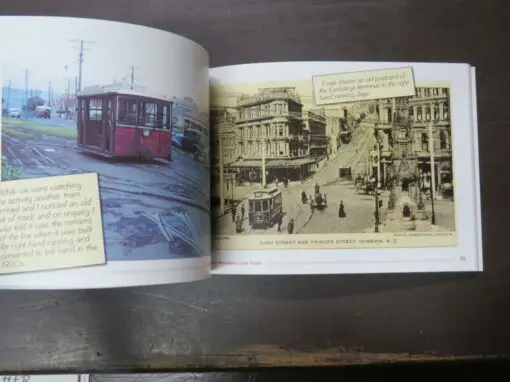 While we were watching
the activity another tram
arrived and I noticed an old
piece of track and on enquiry I
was told it was the remains
of the line when it was built
for right hand running and
converted to left hand in the
I have shown an old postcard of
the Exchange terminus in the right
hand running days.
HIGH STREET AND PRINCES STREET, DUNEDIN, N. Z.